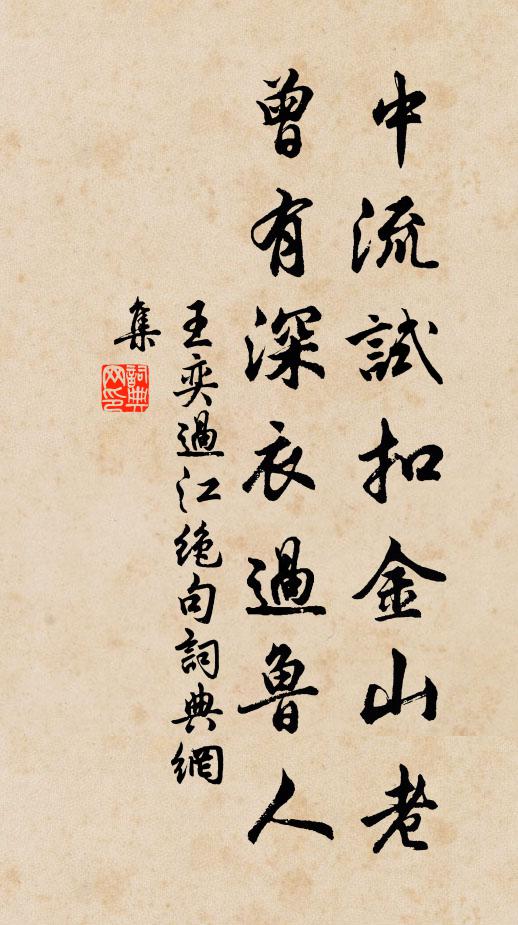 中流試扣金山老
曾有深衣過魯人
王奕過江絶句詞典網
集
詞典網印